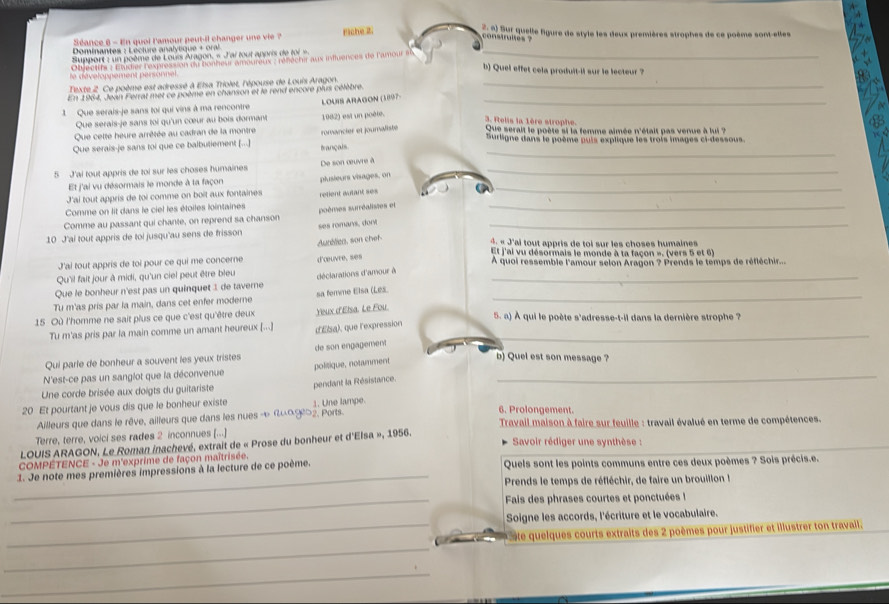 Séance 6 - En quoi l'amour peut-il changer une vie ?
Fiche 2.
Dominantes : Lecture analytique + oral.
Support : un poème de Louis Aragon, « J'ai tout appris de toi ».
Objectifs : Etudier l'expression du bonheur amoureux ; réfléchir aux influences de l'amour
le développement personnel.
Texte 2 Ce poème est adressé à Elsa Triolet, l'épouse de Louis Aragon.
En 1964, Jean Ferrat met ce poème en chanson et le rend encore plus célèbre.
1 Que serais-je sans toi qui vins à ma rencontre
Que serais-je sans toi qu'un cœur au bois dormant
Que cette heure arrêtée au cadran de la montre
Que serais-je sans toi que ce balbutiement [...]
5 J'ai tout appris de toi sur les choses humaines
Et j'ai vu désormais le monde à ta façon
J'ai tout appris de toi comme on boit aux fontaines
Comme on lit dans le ciel les étoiles lointaines
Comme au passant qui chante, on reprend sa chanson
10 J'ai tout appris de toi jusqu'au sens de frisson
J'ai tout appris de toi pour ce qui me concerne
Qu'il fait jour à midi, qu'un ciel peut être bleu
Que le bonheur n'est pas un quinquet 1 de taverne
Tu m'as pris par la main, dans cet enfer moderne
15 Où l'homme ne sait plus ce que c'est qu'être deux
Tu m'as pris par la main comme un amant heureux [...]
Qui parle de bonheur a souvent les yeux tristes
N'est-ce pas un sanglot que la déconvenue
Une corde brisée aux doigts du guitariste
20 Et pourtant je vous dis que le bonheur existe
Ailleurs que dans le rêve, ailleurs que dans les nues → nuages
Terre, terre, voici ses rades 2 inconnues [...]
LOUIS ARAGON (1897-
1982) est un poète,
romancier et journaliste
français.
De son œuvre à
plusieurs visages, on
retient autant ses
poèmes surréalistes et
ses romans, dont
Aurélien, son chef-
d'œuvre, ses
déclarations d'amour à
sa femme Elsa (Les
Yeux d'Elsa, Le Fou
d'Elsa), que l'expression
de son engagement
politique, notamment
pendant la Résistance.
1. Une lampe.
2. Ports.
LOUIS ARAGON, Le Roman inachevé, extrait de « Prose du bonheur et d'Elsa », 1956.
COMPÉTENCE - Je m'exprime de façon maîtrisée.
1. Je note mes premières impressions à la lecture de ce poème.
2. a) Sur quelle figure de style les deux premières strophes de ce poème sont-elles
construites ?
b) Quel effet cela produit-il sur le lecteur ?
3. Relis la 1ère strophe.
Que serait le poète si la femme aimée n'était pas venue à lui ?
Surligne dans le poème puis explique les trois images ci-dessous.
4. « J'ai tout appris de toi sur les choses humaines
Et j'ai vu désormais le monde à ta façon ». (vers 5 et 6)
À quoi ressemble l'amour selon Aragon ? Prends le temps de réfléchir...
5. a) À qui le poète s'adresse-t-il dans la dernière strophe ?
b) Quel est son message ?
6. Prolongement.
Travail maison à faire sur feuille : travail évalué en terme de compétences.
► Savoir rédiger une synthèse :
Quels sont les points communs entre ces deux poèmes ? Sois précis.e.
Prends le temps de réfléchir, de faire un brouillon !
Fais des phrases courtes et ponctuées !
Soigne les accords, l'écriture et le vocabulaire.
quelques courts extraits des 2 poèmes pour justifier et illustrer ton travail.